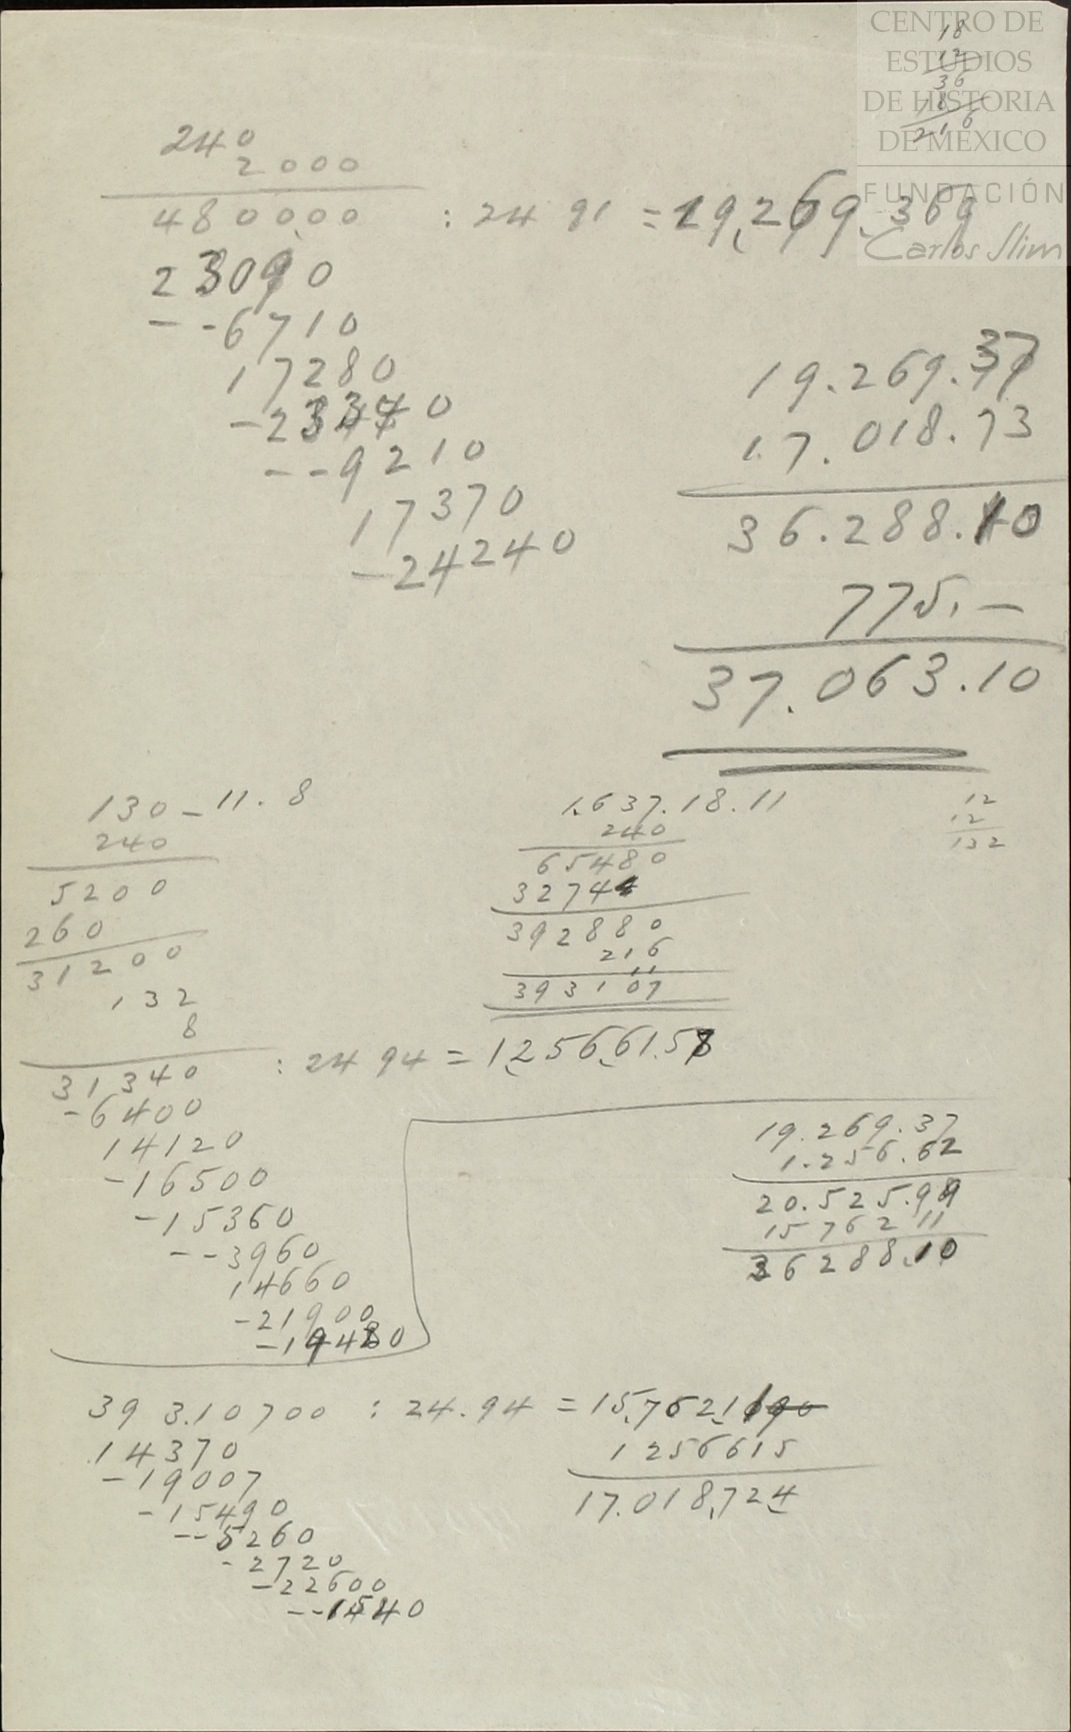 CENTRO DE
ESTUDIOS
DE HISTORIA
DE MÉXICO
FUNDACIÓN
Carlos Slim
18
12
36
18
216
240
2000
480000 : 24 91 = 19,269.369
23090
--6710
17280
-23340
--9210
17370
-24240
19.269.37
17.018.73
36.288.10
775.—
37.063.10
130-11.8
240
5200
260
31200
132
8
31340 : 24 94 = 1256661.58
-6400
14120
-16500
-15360
--3960
14660
-21900
-19480
1.637.18.11
240
65480
3274
392880
216
11
393107
12
12
132
19.269.37
1.256.62
20.525.99
15 762 11
36288.10
39 3.10700 : 24.94 = 15,7621190
14370
-19007
-15490
--5260
-2720
-22600
--1540
1256615
17.018,724